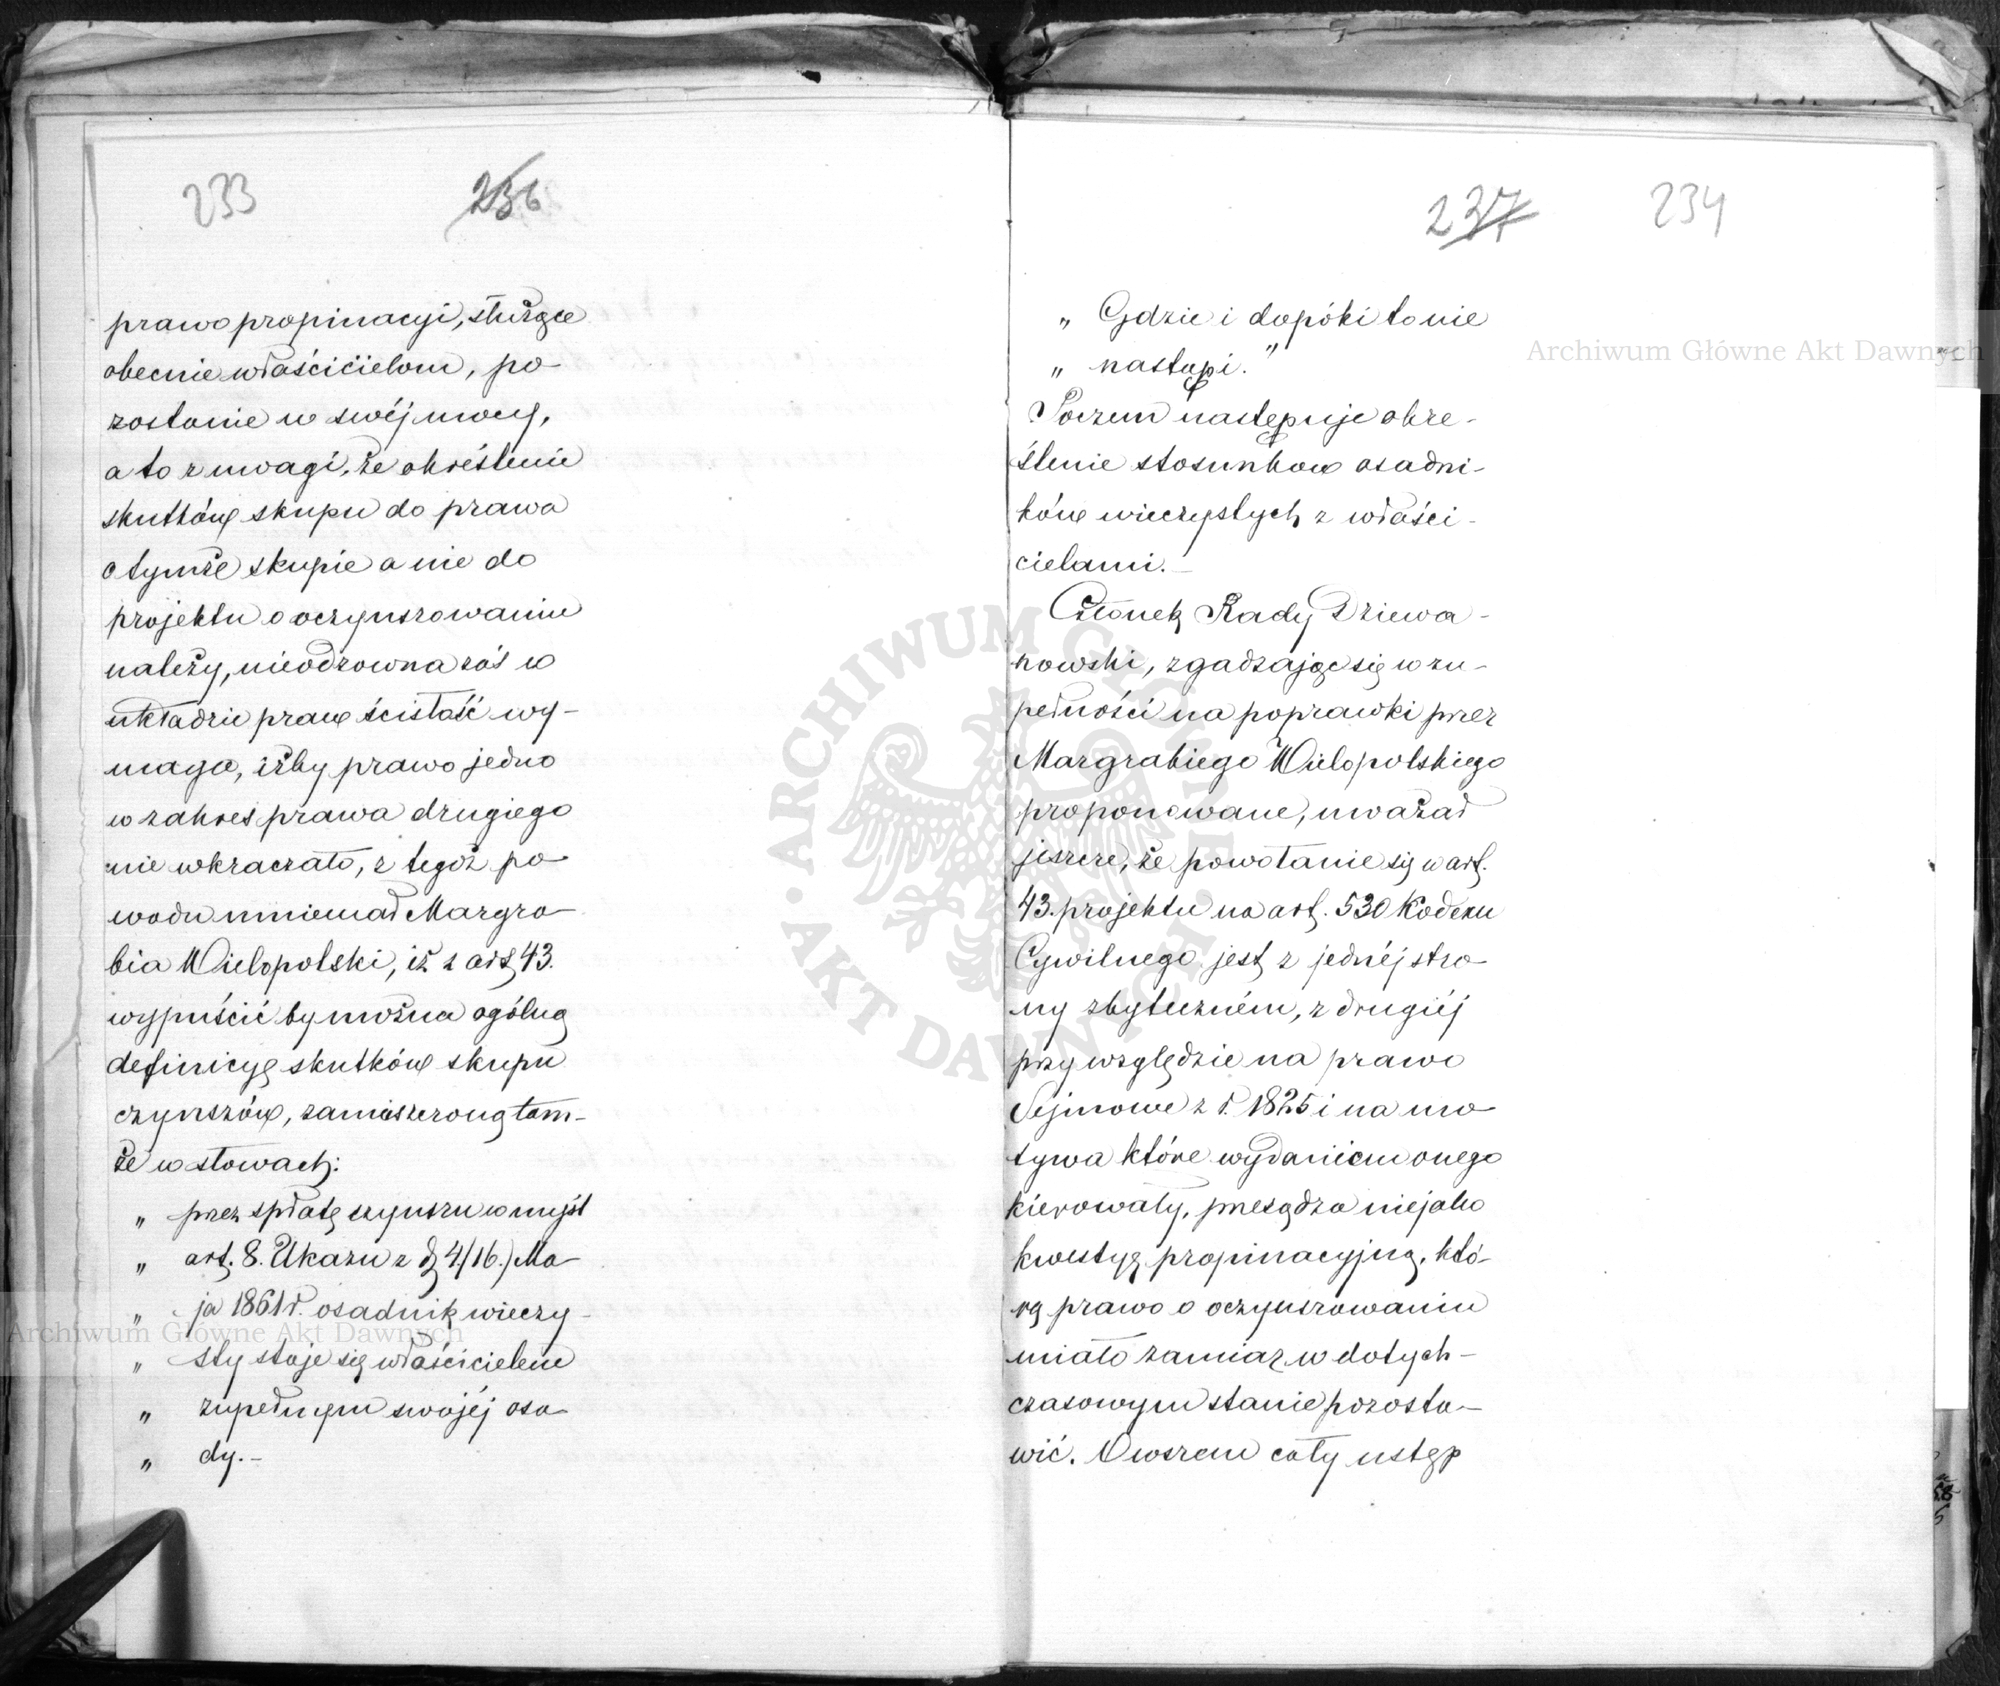 233 236
prawo propinacyi, służące
obecnie właścicielom, po-
zostanie w swéj mocy,
a to z uwagi, że określenie
skutków skupu do prawa
o tymże skupie a nie do
projektu o oczynszowaniu
należy, nieodzowna zaś w
układzie praw ścisłość wy-
maga, iżby prawo jedno
w zakres prawa drugiego
nie wkraczało, z tegóż po-
wodu mniemał Margra-
bia Wielopolski, iż z art. 43.
wypuścić by można ogólną
definicyę skutków skupu
czynszów, zamieszczoną tam-
że w słowach:
„ przez spłatę czynszu w myśl
„ art. 8. Ukazu z d. 4./16.) Ma-
„ ja 1861 r. osadnik wieczy-
„ sty staje się właścicielem
„ zupełnym swojéj osa-
„ dy.-
237 234
„ Gdzie i dopóki to nie
„ nastąpi."
Poczem następuje okre-
ślenie stosunków osadni-
ków wieczystych z właści-
cielami.-
Członek Rady Dziewa-
nowski, zgadzając się w zu-
pełności na poprawki przez
Margrabiego Wielopolskiego
proponowane, uważał
jeszcze, że powołanie się w art.
43. projektu na art. 530 Kodexu
Cywilnego jest z jednéj stro-
ny zbyteczném, z drugiéj
przy względzie na prawo
Sejmowe z r. 1825 i na mo-
tywa które wydaniem onego
kierowały, przesądza niejako
kwestyę propinacyjną, któ-
rą prawo o oczynszowaniu
miało zamiar w dotych-
czasowym stanie pozosta-
wić. Owszem cały ustęp
Archiwum Główne Akt Dawnych
Archiwum Główne Akt Dawnych
ARCHIWUM GŁÓWNE · AKT DAWNYCH ·